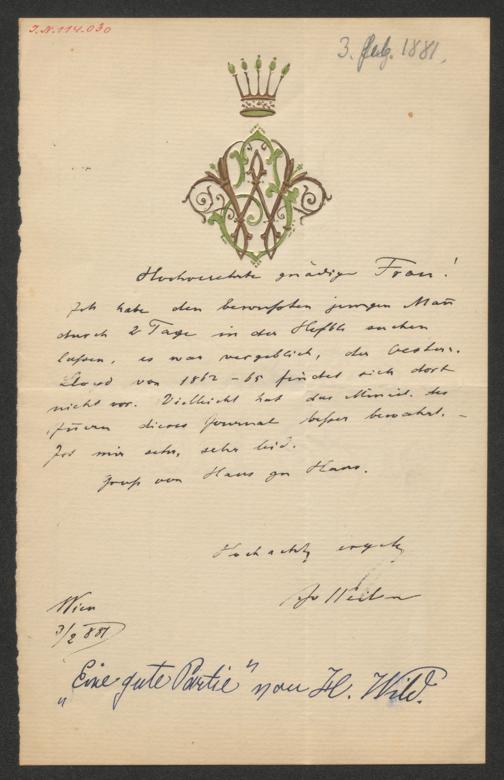 J.N. 114.030
3. Feb. 1881.
Hochverehrte gnädige Frau!
Ich habe den bewußten jungen Mañ
durch 2 Tage in der Hofbb suchen
laßen, es war vergeblich, der oesterr.
Lloyd von 1862–65 findet sich dort
nicht vor. Vielleicht hat das Minist. des
Inern dieses Journal beßer bewahrt. –
Ist mir sehr, sehr leid.
Gruß von Haus zu Haus.
Hochachtg ergeb
Jos Weilen
Wien
3/2 881
„Eine gute Partie" von H. Wild.